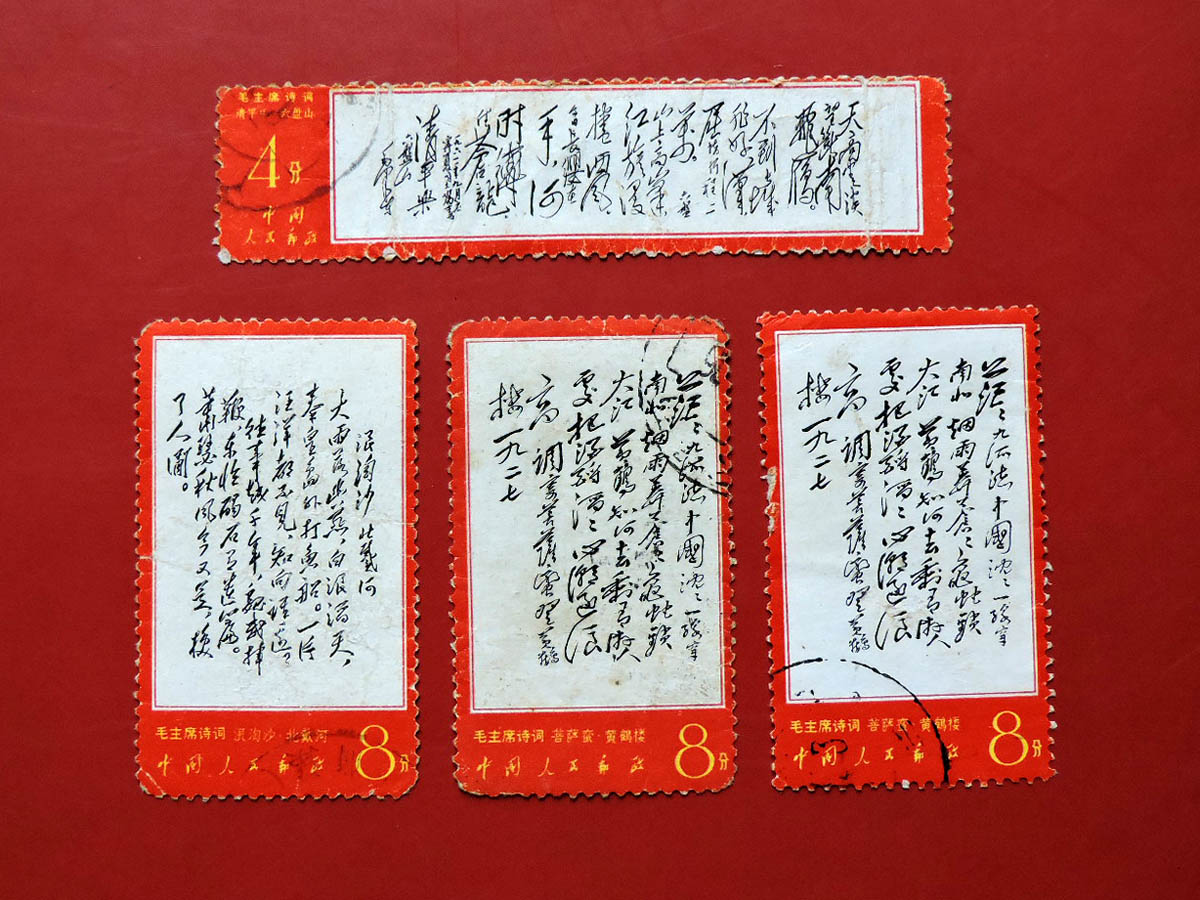 毛主席诗词
清平乐·六盘山
4分
中国
人民邮政
天高云淡
望断南
飛雁。
不到长城
非好漢,
屈指行程二
万。六盘
山上高峰
红旗漫
捲西风,
今日长缨在
手,何
时缚
住苍龍
清平樂
六盘山
毛泽东
浪淘沙 北戴河
大雨落幽燕,白浪滔天,
秦皇岛外打鱼船。一片
汪洋都不见,知向谁边
往事越千年,魏武挥
鞭,东临碣石有遗篇。
萧瑟秋风今又是,换
了人间。
毛主席诗词 浪淘沙·北戴河
中国人民邮政 8分
茫茫九派流中國沈沈一线穿
南北烟雨莽苍苍龟蛇鎖
大江 黄鹤知何去剩有游人
處把酒酹滔滔心潮逐浪
高 调寄菩萨蛮登黄鹤
楼 一九二七
毛主席诗词 菩萨蛮·黄鹤楼
中国人民邮政 8分
茫茫九派流中國沈沈一线穿
南北烟雨莽苍苍龟蛇鎖
大江 黄鹤知何去剩有游人
處把酒酹滔滔心潮逐浪
高 调寄菩萨蛮登黄鹤
楼 一九二七
毛主席诗词 菩萨蛮·黄鹤楼
中国人民邮政 8分